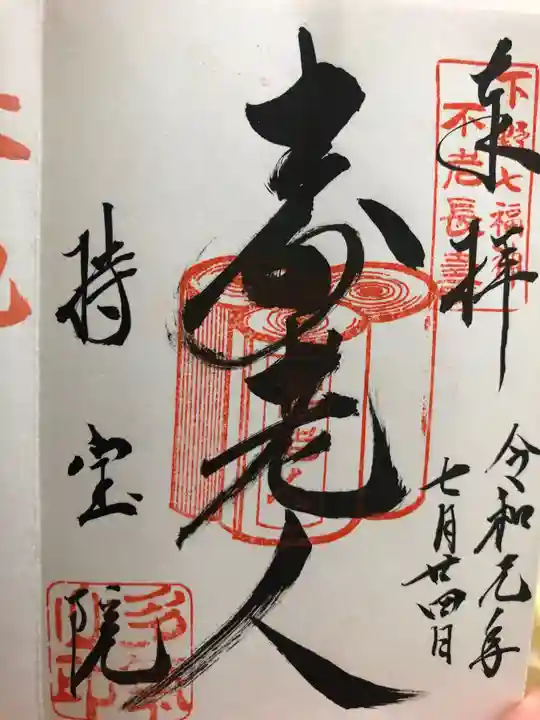 来拝
下野七福神
不老長寿
令和元年
七月廿四日
寿老人
持宝院